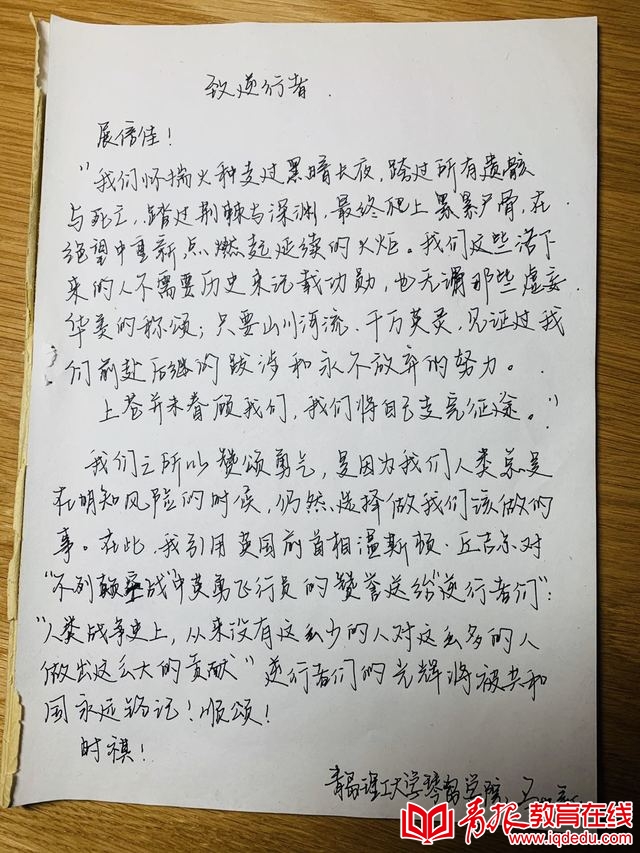 致逆行者.
展信佳!
"我们怀揣火种走过黑暗长夜,跨过所有遗骸
与死亡,踏过荆棘与深渊,最终爬上累累尸骨,在
绝望中重新点燃起延续的火炬。我们这些活下
来的人不需要历史来记载功勋,也无谓那些虚妄
华美的称颂;只要山川河流、千万英灵,见证过我
们前赴后继的跋涉和永不放弃的努力。
上苍并未眷顾我们,我们将自己走完征途。"
我们之所以赞颂勇气,是因为我们人类总是
在明知风险的时候,仍然选择做我们该做的
事。在此,我引用英国前首相温斯顿·丘吉尔对
"不列颠空战"中英勇飞行员的赞誉送给"逆行者们":
"人类战争史上,从来没有这么少的人对这么多的人
做出这么大的贡献"逆行者们的光辉将被共和
国永远铭记!顺颂!
时祺!
青岛理工大学琴岛学院
青报教育在线
www.iqdedu.com